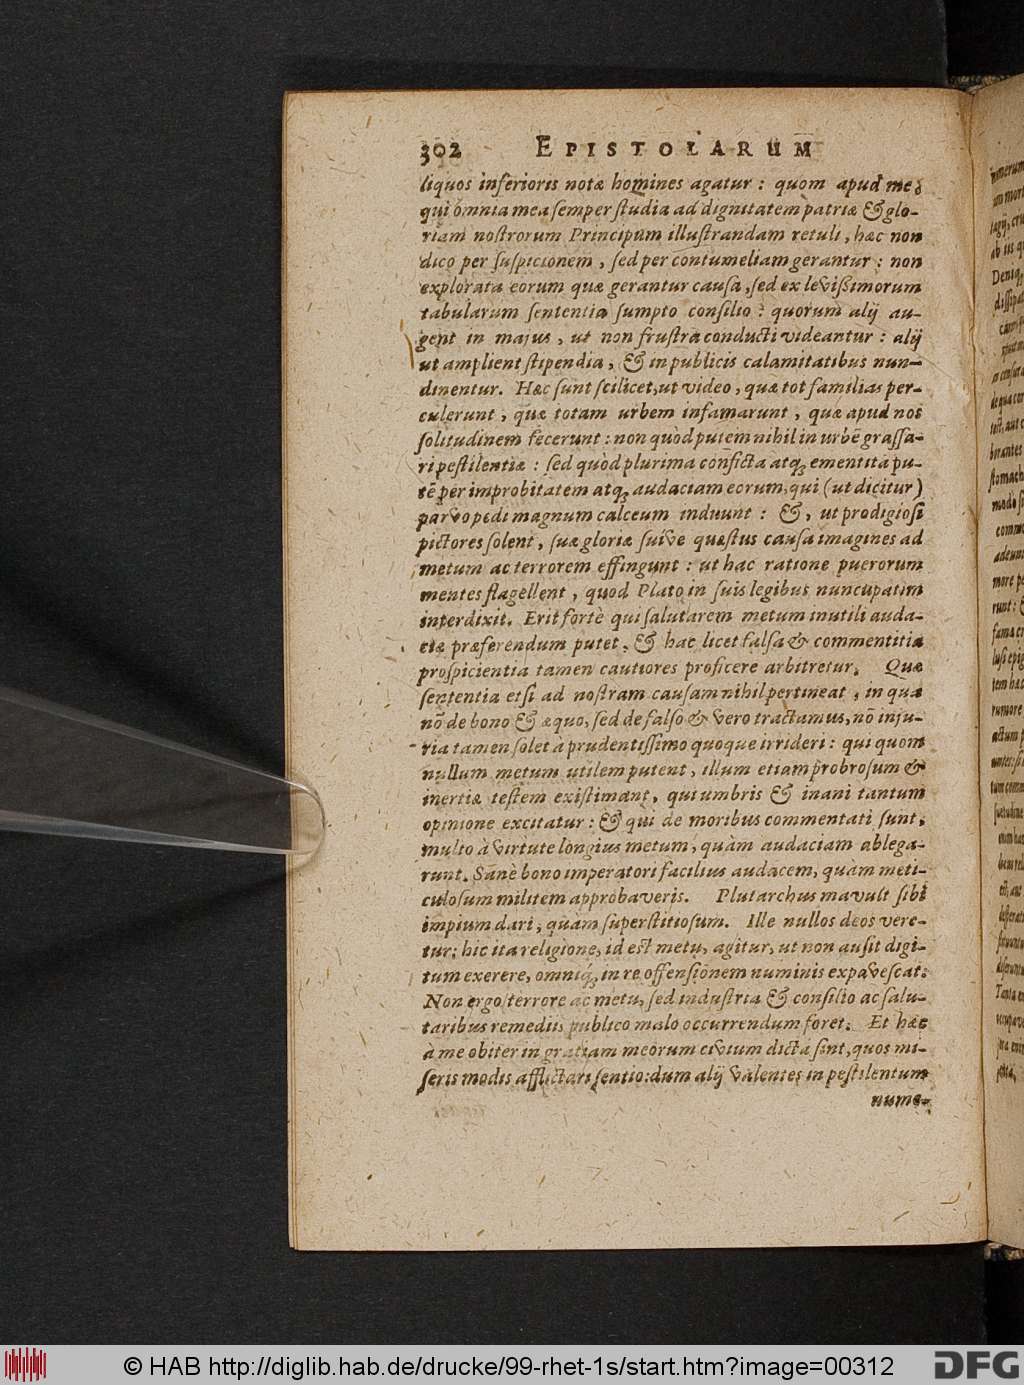 302 EPISTOLARUM
liquos inferioris notæ homines agatur: quom apud me,
qui omnia mea semper studia ad dignitatem patriæ & glo-
riam nostrorum Principum illustrandam retuli, hæc non
dico per suspicionem, sed per contumeliam gerantur: non
explorata eorum quæ gerantur causa, sed ex levissimorum
tabularum sententia sumpto consilio: quorum alij au-
gent in majus, ut non frustra conducti videantur: alij
ut amplient stipendia, & in publicis calamitatibus nun-
dinentur. Hæc sunt scilicet, ut video, quæ tot familias per-
culerunt, quæ totam urbem infamarunt, quæ apud nos
solitudinem fecerunt: non quòd putem nihil in urbē grassa-
ri pestilentiæ: sed quòd plurima conficta atq; ementita pu-
tē per improbitatem atq; audaciam eorum, qui (ut dicitur)
parvo pedi magnum calceum induunt: &, ut prodigiosi
pictores solent, suæ gloriæ suive quæstus causa imagines ad
metum ac terrorem effingunt: ut hac ratione puerorum
mentes flagellent, quod Plato in suis legibus nuncupatim
interdixit. Erit fortè qui salutarem metum inutili auda-
ciæ præferendum putet, & hac licet falsa & commentitia
prospicientia tamen cautiores proficere arbitretur. Quæ
sententia etsi ad nostram causam nihil pertineat, in qua
nō de bono & æquo, sed de falso & vero tractamus, nō inju-
ria tamen solet à prudentissimo quoque irrideri: qui quom
nullum metum utilem putent, illum etiam probrosum &
inertiæ testem existimant, qui umbris & inani tantum
opinione excitatur: & qui de moribus commentati sunt,
multo à virtute longius metum, quàm audaciam ablega-
runt. Sanè bono imperatori facilius audacem, quàm meti-
culosum militem approbaveris. Plutarchus mavult sibi
impium dari, quàm superstitiosum. Ille nullos deos vere-
tur: hic ita religione, id est metu, agitur, ut non ausit digi-
tum exerere, omniq; in re offensionem numinis expavescat.
Non ergo terrore ac metu, sed industria & consilio ac salu-
taribus remediis publico malo occurrendum foret. Et hæc
à me obiter in gratiam meorum civium dicta sint, quos mi-
seris modis afflictari sentio: dum alij valentes in pestilentum
nume-
© HAB http://diglib.hab.de/drucke/99-rhet-1s/start.htm?image=00312
DFG